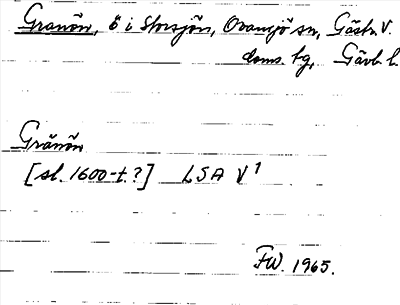 Granön, ö i Storsjön, Ovansjö sn, Gästr. V.
doms. tg, Gävl. l.
Gränön
[sl. 1600-t.?] LSA V1
FW. 1965.